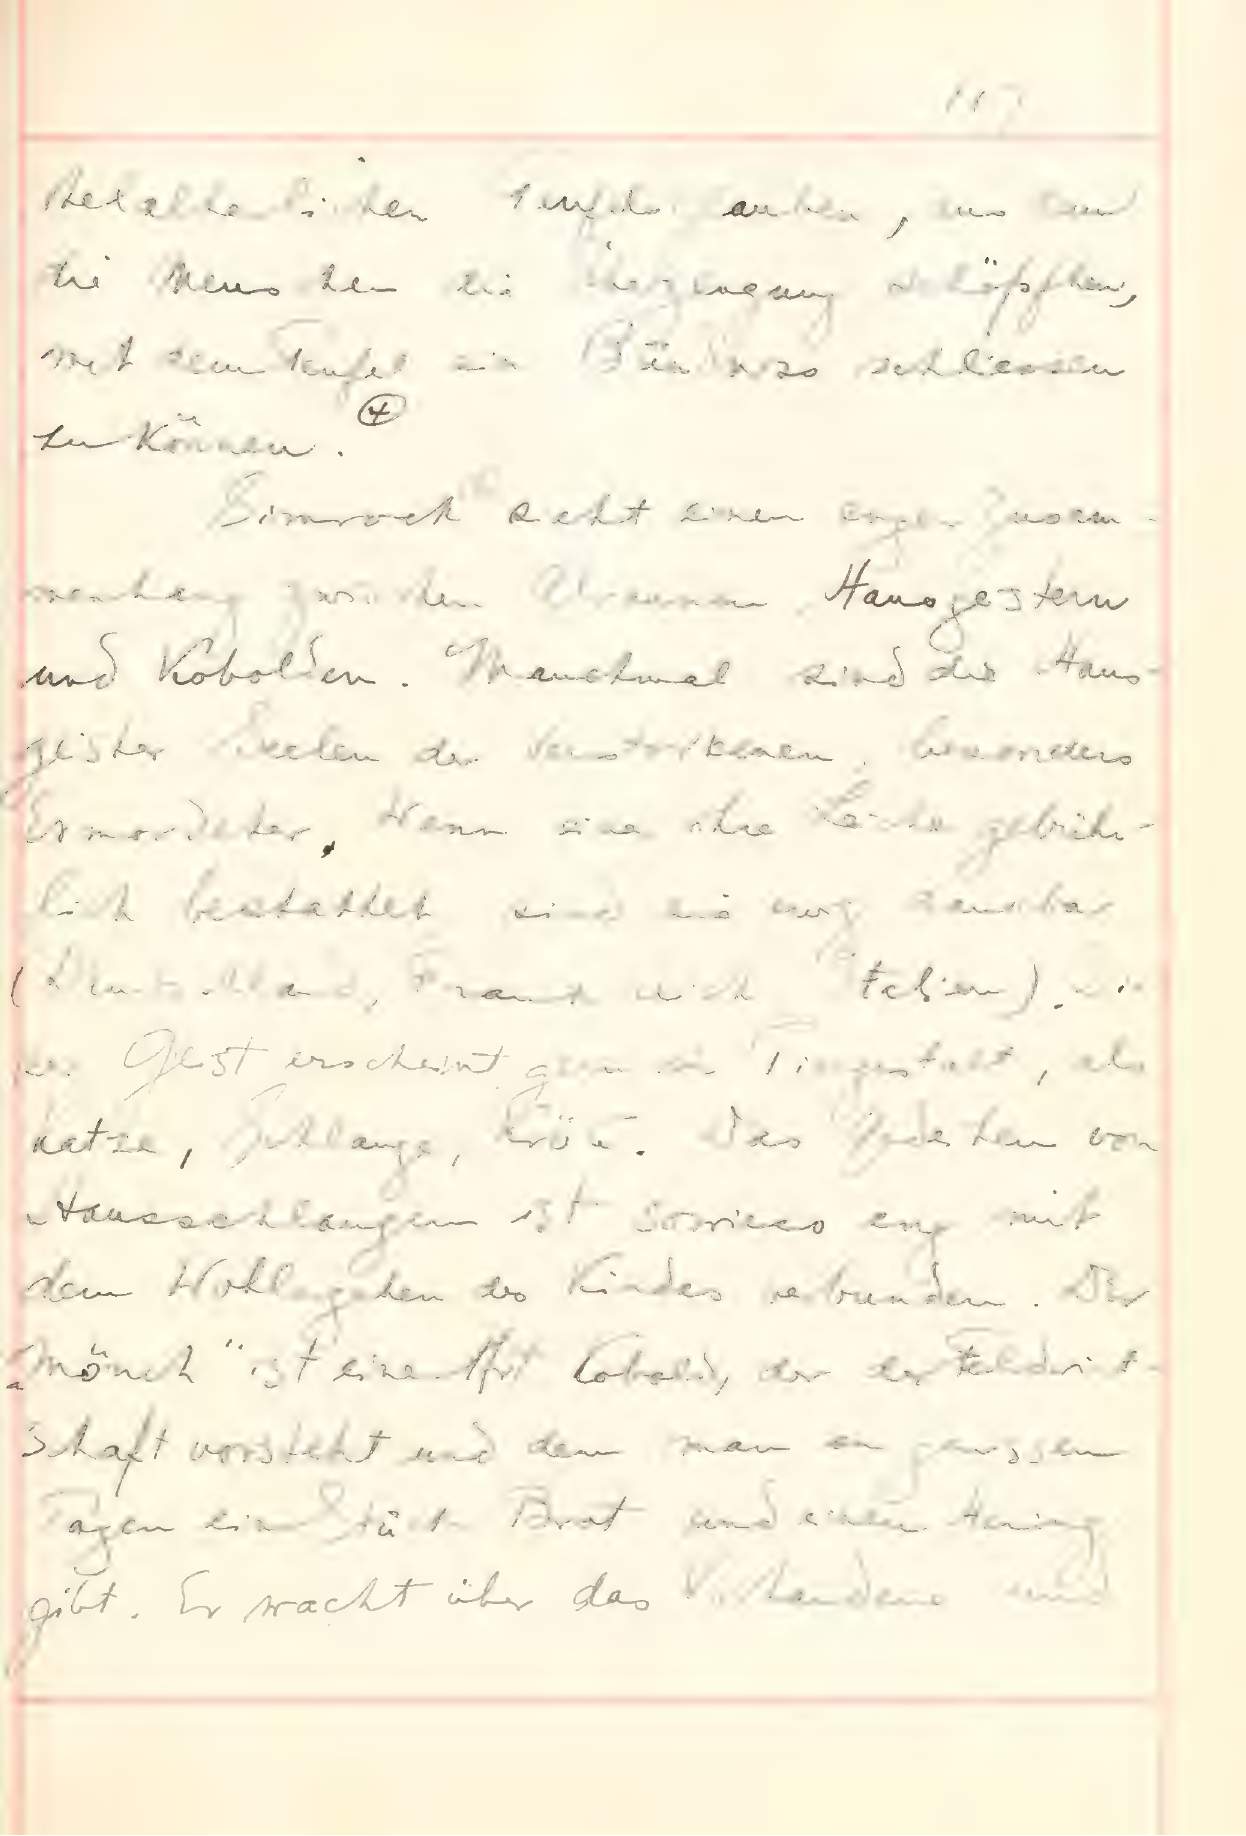 117
telalterlichen Teufelsglauben, aus dem
die Menschen die Überzeugung schöpften,
mit dem Teufel ein Bündniss schliessen
zu können. (+)
Simrock sieht einen engen Zusam-
menhang zwischen Alraunen, Hausgeistern
und Kobolden. Manchmal sind die Haus-
geister Seelen der Verstorbenen, besonders
Ermordeter. Wenn ihre Leiche gebühr-
lich bestattet sind sie dankbar
(Deutschland, Frankreich, Italien).
Geist erscheint gern in Tiergestalt, als
Katze, Schlange, Kröte. Das Gedeihen von
Hausschlangen ist sowieso eng mit
dem Wohlergehen des Kindes verbunden. Der
„Mönch" ist eine Art Kobold, der der Feldwirt-
schaft vorsteht und dem man an gewissen
Tagen ein Stück Brot und einen Hering
gibt. Er wacht über das Vorhandene und